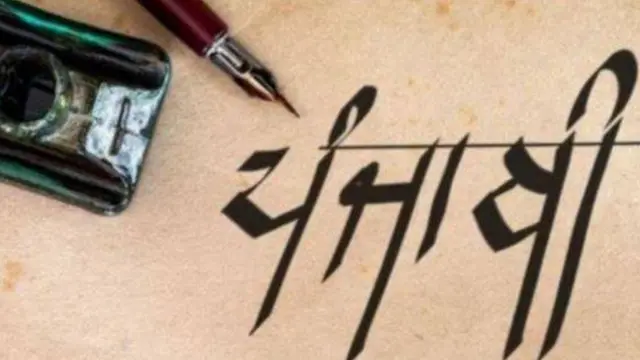 ਪੰਜਾਬੀ